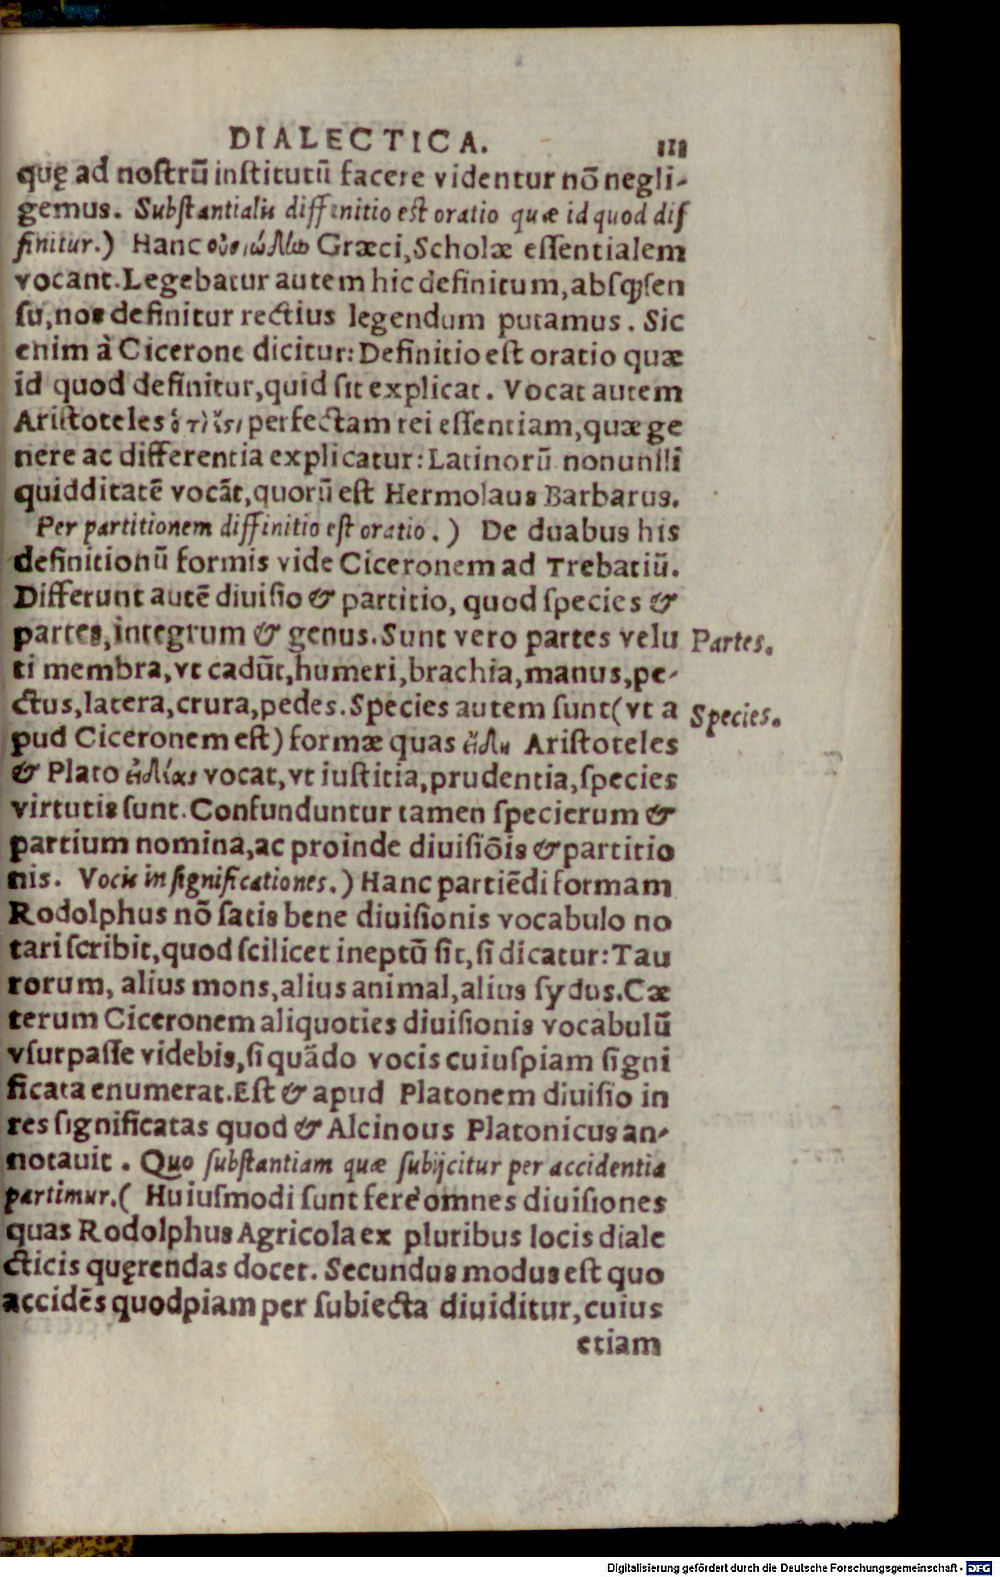 DIALECTICA. 111
quę ad nostrū institutū facere videntur nō negli-
gemus. Substantialis diffinitio est oratio quæ id quod dif
finitur.) Hanc οὐσιώδη Græci, Scholæ essentialem
vocant. Legebatur autem hic definitum, absq; sen
su, nos definitur rectius legendum putamus. Sic
enim à Cicerone dicitur: Definitio est oratio quæ
id quod definitur, quid sit explicat. Vocat autem
Aristoteles perfectam rei essentiam, quæ ge
nere ac differentia explicatur: Latinorū nonnulli
quidditatē vocāt, quorū est Hermolaus Barbarus.
Per partitionem diffinitio est oratio.) De duabus his
definitionū formis vide Ciceronem ad Trebatiū.
Differunt autē diuisio & partitio, quod species &
partes, integrum & genus. Sunt vero partes velu
Partes.
ti membra, vt cadūt, humeri, brachia, manus, pe-
ctus, latera, crura, pedes. Species autem sunt (vt a
Species.
pud Ciceronem est) formæ quas εἴδη Aristoteles
& Plato ἰδέας vocat, vt iustitia, prudentia, species
virtutis sunt. Confunduntur tamen specierum &
partium nomina, ac proinde diuisiōis & partitio
nis. Vocis in significationes.) Hanc partiēdi formam
Rodolphus nō satis bene diuisionis vocabulo no
tari scribit, quod scilicet ineptū sit, si dicatur: Tau
rorum, alius mons, alius animal, alius sydus. Cæ
terum Ciceronem aliquoties diuisionis vocabulū
vsurpasse videbis, si quādo vocis cuiuspiam signi
ficata enumerat. Est & apud Platonem diuisio in
res significatas quod & Alcinous Platonicus an-
notauit. Quo substantiam quæ subijcitur per accidentia
partimur.( Huiusmodi sunt ferè omnes diuisiones
quas Rodolphus Agricola ex pluribus locis diale
cticis quęrendas docet. Secundus modus est quo
accidēs quodpiam per subiecta diuiditur, cuius
etiam
Digitalisierung gefördert durch die Deutsche Forschungsgemeinschaft - DFG